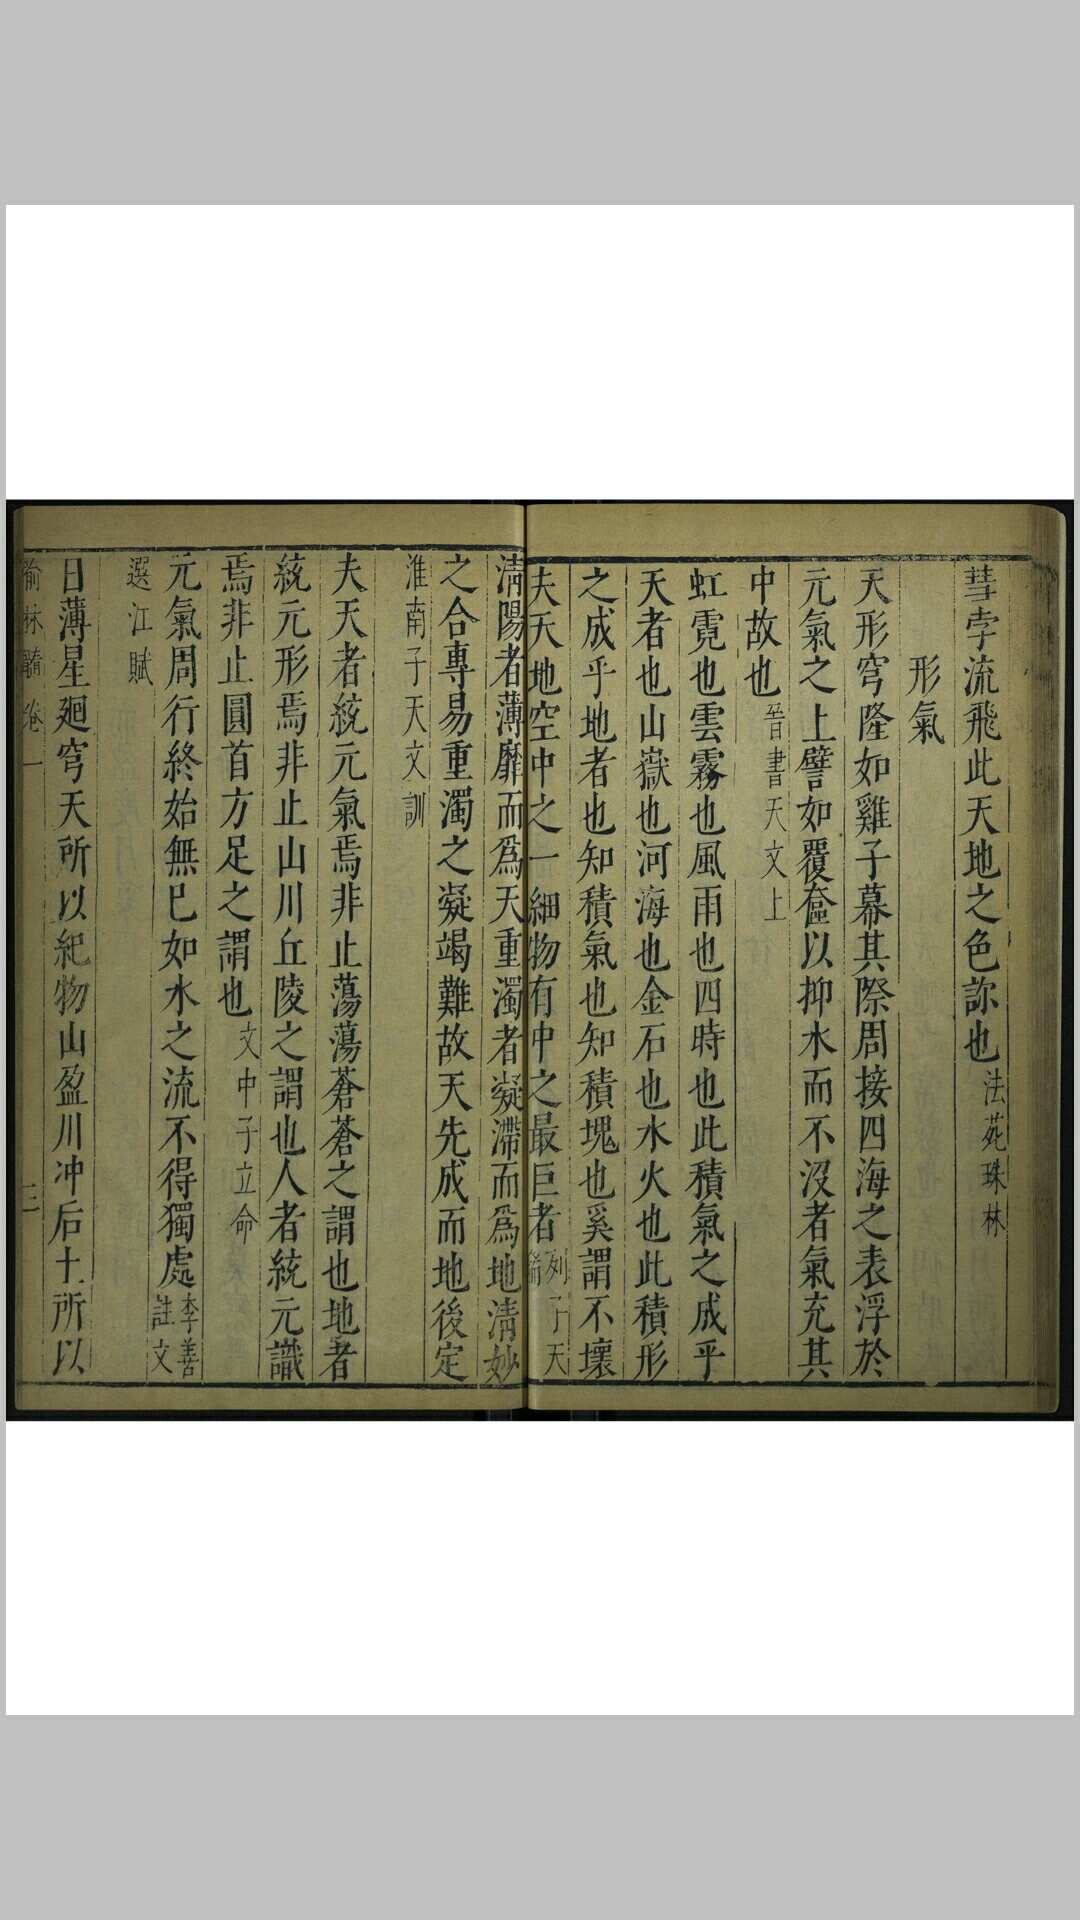 彗孛流飛此天地之色診也法苑珠林
形氣
天形穹隆如雞子幕其際周接四海之表浮於
元氣之上譬如覆奩以抑水而不沒者氣充其
中故也晉書天文上
虹霓也雲霧也風雨也四時也此積氣之成乎
天者也山嶽也河海也金石也水火也此積形
之成乎地者也知積氣也知積塊也奚謂不壞
夫天地空中之一細物有中之最巨者列子天
淸陽者薄靡而爲天重濁者凝滯而爲地淸妙
之合專易重濁之凝竭難故天先成而地後定
淮南子天文訓
夫天者統元氣焉非止蕩蕩蒼蒼之謂也地者
統元形焉非止山川丘陵之謂也人者統元識
焉非止圓首方足之謂也文中子立命
元氣周行終始無已如水之流不得獨處李善註文
選江賦
日薄星迴穹天所以紀物山盈川冲后土所以
喻林髓卷一 三